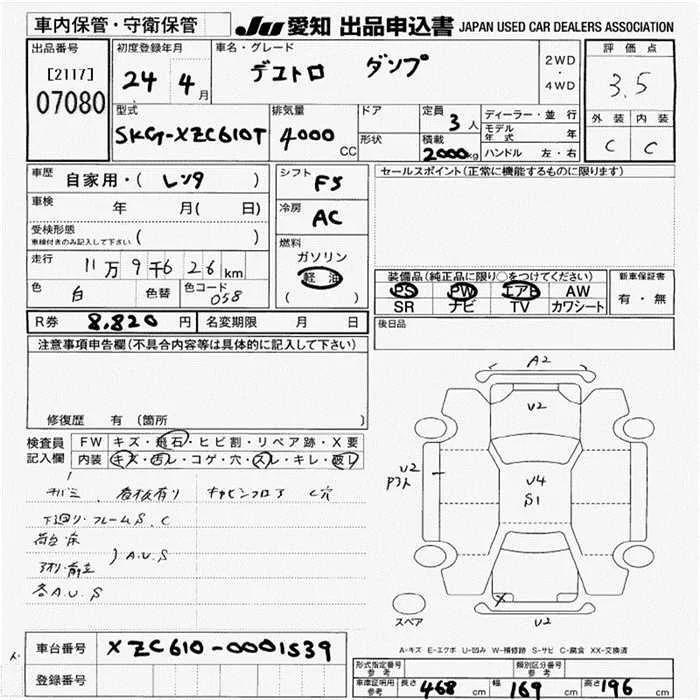 車内保管・守衛保管
JU 愛知 出品申込書 JAPAN USED CAR DEALERS ASSOCIATION
出品番号 初度登録年月 車名・グレード 2WD・4WD 評価点
[2117] 07080 24 4月 デュトロ ダンプ 3.5
型式 排気量 ドア 定員 3人 ディーラー・並行 外装 内装
SKG-XZC610T 4000CC 形状 積載 2000kg モデル年式 年 C C
ハンドル 左・右
車歴 自家用・( レンタ ) シフト F5 セールスポイント(正常に機能するものに限ります)
車検 年 月( 日) 冷房 AC
受検形態 車検付きのみ記入して下さい ( )
燃料 ガソリン 軽油 ( )
走行 11万9千6 26km
色 白 色替 色コード 058
装備品(純正品に限り○をつけてください) 新車保証書
PS PW エアB AW 有・無
SR ナビ TV カワシート
R券 8.820円 名変期限 月 日 後日品
注意事項申告欄(不具合内容等は具体的に記入して下さい)
修復歴 有 (箇所 )
検査員記入欄 FW キズ・飛石・ヒビ割・リペア跡・X要
内装 キズ・汚レ・コゲ・穴・スレ・キレ・破レ
看板有り キャビンフロア C穴
下廻り・フレームS、C
荷台床
) A.U.S
各A.U.S
A2
U2
U2
U4
S1
X
U2
スペア
A-キズ E-エクボ U-凹み W-補修跡 S-サビ C-腐食 XX-交換済
車台番号 XZC610-0001539
登録番号
形式指定番号 参考 類別区分番号 参考
車庫証明用 参考 長さ 468cm 幅 169cm 高さ 196cm